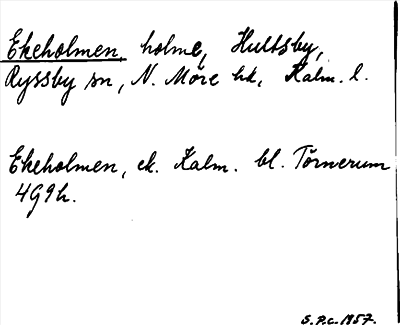 Ekeholmen, holme, Hultsby,
Ryssby sn, N. Möre hd, Kalm. l.
Ekeholmen, ek. Kalm. bl. Törnerum
4G9h.
S.P.C. 1957.